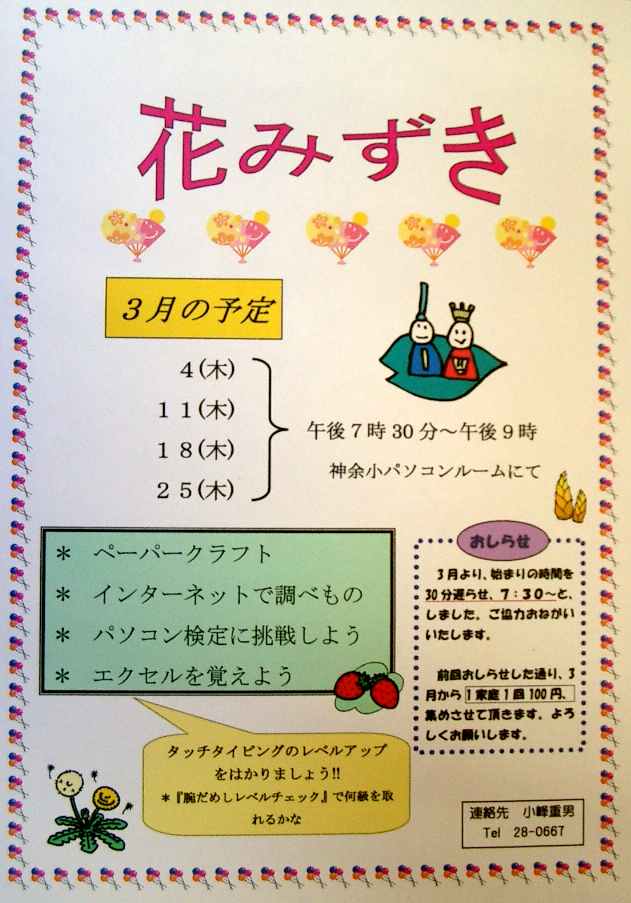 花みずき
３月の予定
４(木)
１１(木)
１８(木)
２５(木)
午後７時30分～午後９時
神余小パソコンルームにて
＊　ペーパークラフト
＊　インターネットで調べもの
＊　パソコン検定に挑戦しよう
＊　エクセルを覚えよう
おしらせ
３月より、始まりの時間を
30分遅らせ、７：３０～と、
しました。ご協力おねがい
いたします。
前回おしらせした通り、3
月から１家庭１回100円、
集めさせて頂きます。よろ
しくお願いします。
タッチタイピングのレベルアップ
をはかりましょう!!
＊『腕だめしレベルチェック』で何級を取
れるかな
連絡先　小峰重男
Tel　28-0667